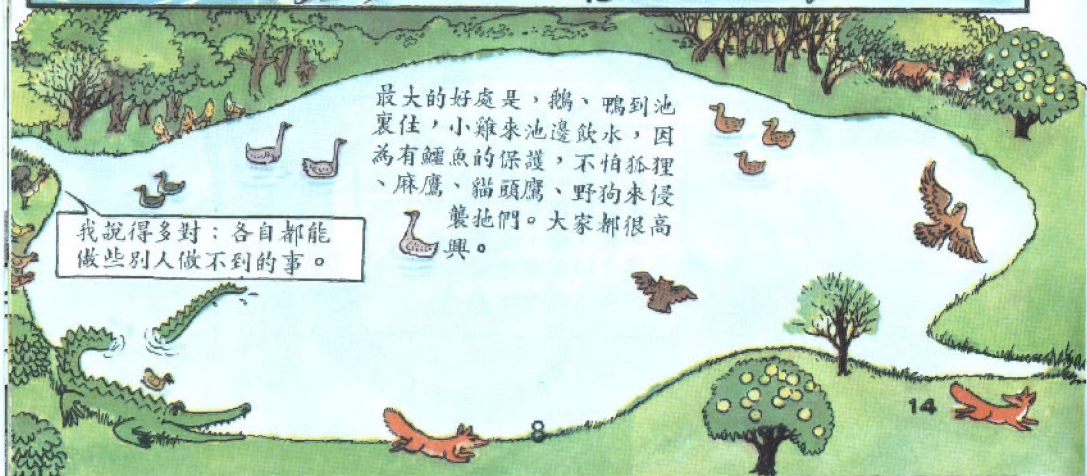 最大的好處是，鵝、鴨到池
裏住，小雞來池邊飲水，因
為有鱷魚的保護，不怕狐狸
、麻鷹、貓頭鷹、野狗來侵
襲牠們。大家都很高
興。
我說得多對：各自都能
做些別人做不到的事。
8
14